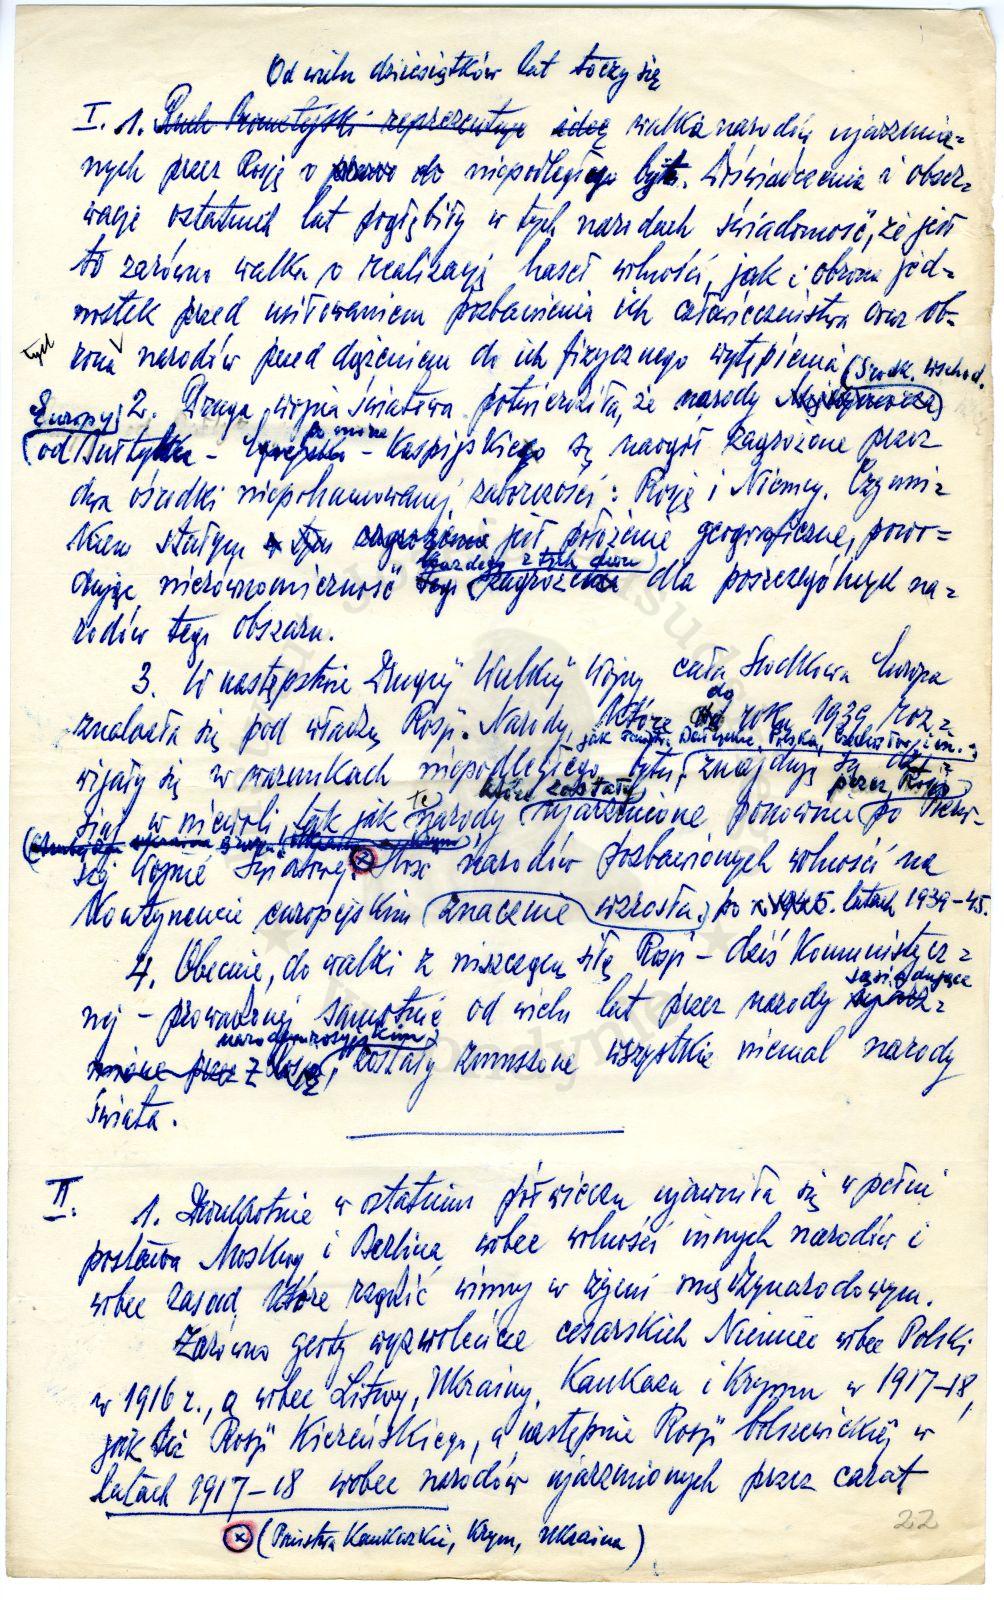 Od wielu dziesiątków lat toczy się
I. 1. Ruch Prometejski reprezentuje ideę walka narodów ujarzmio-
nych przez Rosję o prawo do niepodległego bytu. Doświadczenia i obser-
wacje ostatnich lat pogłębiły w tych narodach świadomość, że jest
to zarówno walka o realizację haseł wolności, jak i obrona jed-
nostek przed usiłowaniem pozbawienia ich człowieczeństwa oraz ob-
tych
rona narodów przed dążeniem do ich fizycznego wytępienia
(Środk. wschod.
Europy)
2. Druga wojna światowa potwierdziła, że narody
do morza
(od Bałtyku - Kaspijskiego są naogół zagrożone przez
dwa ośrodki niepohamowanej zaborczości: Rosję i Niemcy. Czynni-
kiem stałym w tym zagrożeniu jest położenie geograficzne, powo-
każdego z tych dwu
dujące nierównomierność tego zagrożenia dla poszczególnych na-
rodów tego obszaru.
3. W następstwie Drugiej Wielkiej Wojny cała Środkowa Europa
do
znalazła się pod władzą Rosji. Narody, które od roku 1939 roz-
jak Państwa Bałtyckie, Polska, Czechosłowacja i in.
wijały się w warunkach niepodległego bytu, znajdują się dziś
które zostały przez Rosję
w niewoli, tak jak te narody ujarzmione ponownie po Pierw-
szej Wojnie Światowej. (x) Ilość narodów pozbawionych wolności na
kontynencie europejskim znacznie wzrosła, po latach 1939-45.
4. Obecnie, do walki z niszczącą siłą Rosji - dziś Komunistycz-
nej - prowadzonej samotnie od wielu lat przez narody sąsiadujące
narodem rosyjskim
z Rosją, zostały zmuszone wszystkie niemal narody
świata.
II. 1. Dwukrotnie w ostatnim półwieczu ujawniła się w pełni
postawa Moskwy i Berlina wobec wolności innych narodów i
wobec zasad, które rządzić winny w życiu międzynarodowym.
Zarówno gesty wyzwoleńcze cesarskich Niemiec wobec Polski
w 1916 r., a wobec Litwy, Ukrainy, Kaukazu i Krymu w 1917-18,
jak też Rosji Kiereńskiego, a następnie Rosji bolszewickiej w
latach 1917-18 wobec narodów ujarzmionych przez carat
(x) (Państwa Kaukaskie, Krym, Ukraina)
22